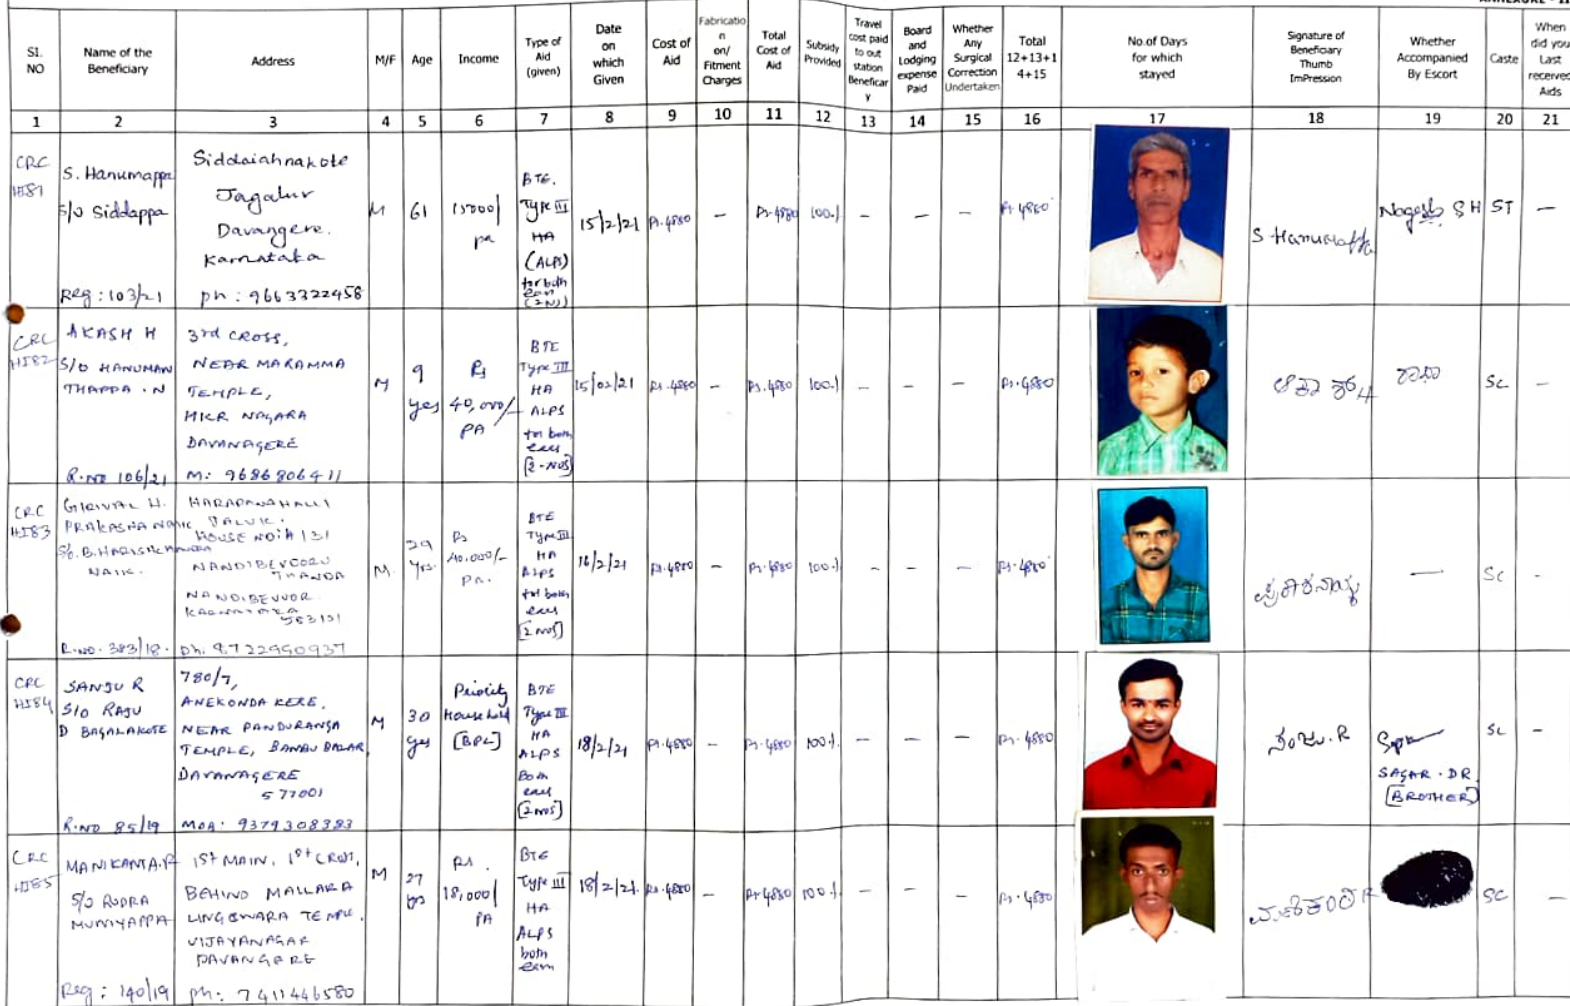 ANNEXURE - II
Sl. NO
Name of the Beneficiary
Address
M/F
Age
Income
Type of Aid (given)
Date on which Given
Cost of Aid
Fabricatio n on/ Fitment Charges
Total Cost of Aid
Subsidy Provided
Travel cost paid to out station Beneficiar y
Board and Lodging expense Paid
Whether Any Surgical Correction Undertaken
Total 12+13+1 4+15
No.of Days for which stayed
Signature of Beneficiary Thumb ImPression
Whether Accompanied By Escort
Caste
When did you Last received Aids
1 2 3 4 5 6 7 8 9 10 11 12 13 14 15 16 17 18 19 20 21
CRC HI81
S. Hanumappa
S/o Siddappa
Reg : 103/21
Siddaiahnakote
Jagalur
Davangere.
Karnataka
ph : 9663322458
M
61
15000/ pa
BTE.
Type III
HA
(ALPS)
for both
ears
(2N))
15/2/21
Rs.4880
-
Rs.4880
100%
-
-
-
Rs.4880
S Hanumappa
Nagesh S H
ST
-
CRC HI82
AKASH H
S/O HANUMAN
THAPPA . N
R.NO 106/21
3rd CROSS,
NEAR MARAMMA
TEMPLE,
HKR NAGARA
DAVANAGERE
M: 9686806411
M
9 yes
Rs 40,000/- PA
BTE
Type III
HA
ALPS
for both
ears
[2-NOS]
15/02/21
Rs.4880
-
Rs.4880
100%
-
-
-
Rs.4880
SC
-
CRC HI83
GIRIVAL H.
PRAKASHA NAIK
S/o. B.HARISHCHANDRA
NAIK.
R.NO. 383/18.
HARAPANAHALLI
TALUK.
HOUSE NO:A 131
NANDIBEVOORU
THANDA
NANDIBEVOOR.
KARNATAKA
583131
ph. 8722990937
M.
29 Yrs.
Rs 40.000/- PA.
BTE
Type III
HA
ALPS
for both
ears
[2NOS]
16/2/21
Rs.4880
-
Rs.4880
100%
-
-
-
Rs.4880
-
SC
-
CRC HI84
SANJU R
S/O RAJU
D BAGALAKOTE
R.NO 85/19
780/7,
ANEKONDA KERE,
NEAR PANDURANGA
TEMPLE,
DAVANAGERE
577001
MOB: 9379308383
M
30 yes
Priority
Household
[BPL]
BTE
Type III
HA
ALPS
Both
ears
[2NOS]
18/2/21
Rs.4880
-
Rs.4880
100%
-
-
-
Rs.4880
ಸಂಜು. R
SAGAR . DR
[BROTHER]
SC
-
CRC HI85
MANIKANTA.R
S/O RUDRA
MUNIYAPPA
Reg : 140/19
1st MAIN, 1st CROSS,
BEHIND MALLARA
LINGESWARA TEMPLE.
VIJAYANAGAR
DAVANGERE
ph: 7411446580
M
27
Rs.
18,000/
PA
BTE
Type III
HA
ALPS
both
ears
18/2/21.
Rs.4880
-
Rs 4880
100%
-
-
-
Rs.4880
SC
-